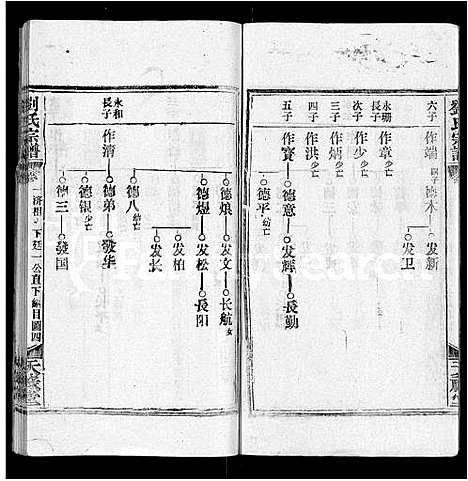 劉氏宗譜
六子 作端 德木 发新
发卫
永珊長子 作章少亡
次子 作少少亡
三子 作炳少亡
四子 作洪少亡
五子 作賽 德意 发輝 長勤
德平幼亡
永和長子 作清 德烺 发文 长航女
德煜 发松 長阳
发柏
发长
德八幼亡
德弟 发华
德银少亡
德三 發国
劉氏宗譜
下廷一公直下 編目圖四